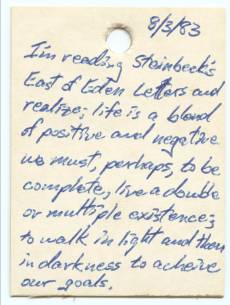 8/3/83
I'm reading Steinbeck's
East of Eden Letters and
realize; life is a blend
of positive and negative
we must, perhaps, to be
complete, live a double
or multiple existence;
to walk in light and then
in darkness to acheive
our goals.